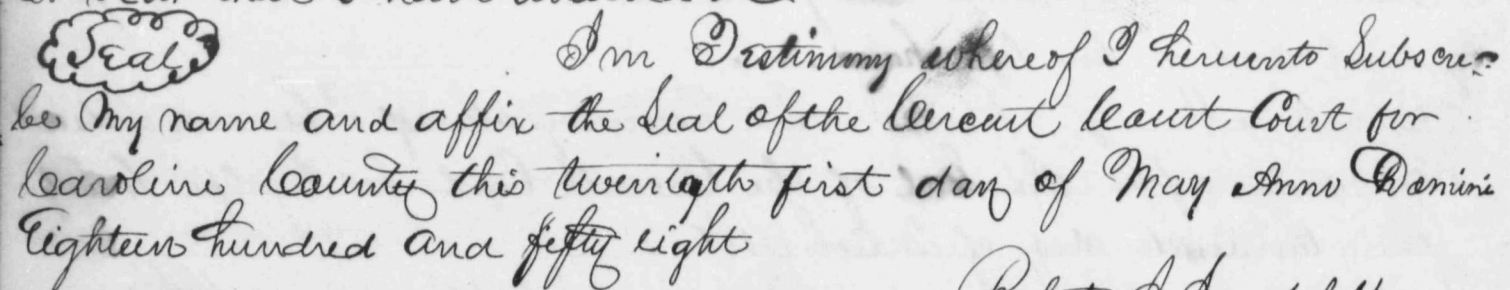 Seal In Testimony whereof I hereunto Subscri-
be My name and affix the Seal of the Circuit Court Court for
Caroline County this twentyth first day of May Anno Domini
Eighteen hundred and fifty eight